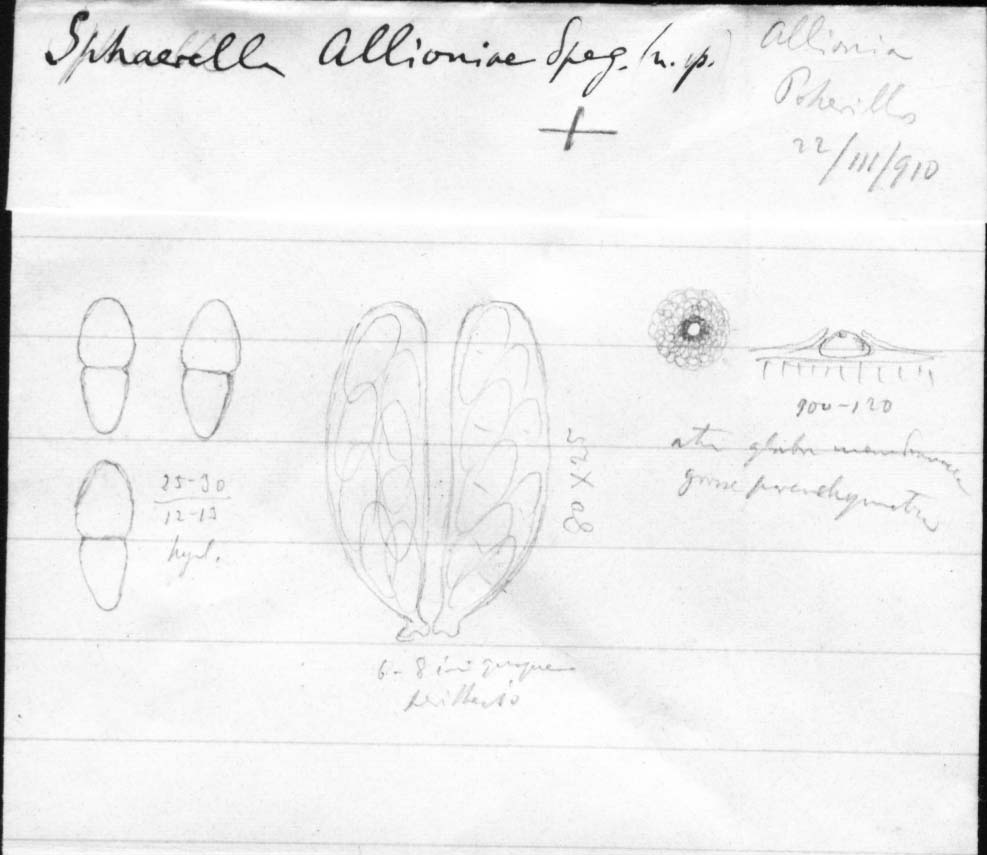 Sphaerella Allioniae Speg. (n. sp.)
Allionia
Potrerillos
22/III/910
25-30
12-13
hyal.
80 X 25
900-120
atra glabra membranacea
grosse parenchymatica
6-8 in quoque
perithecio